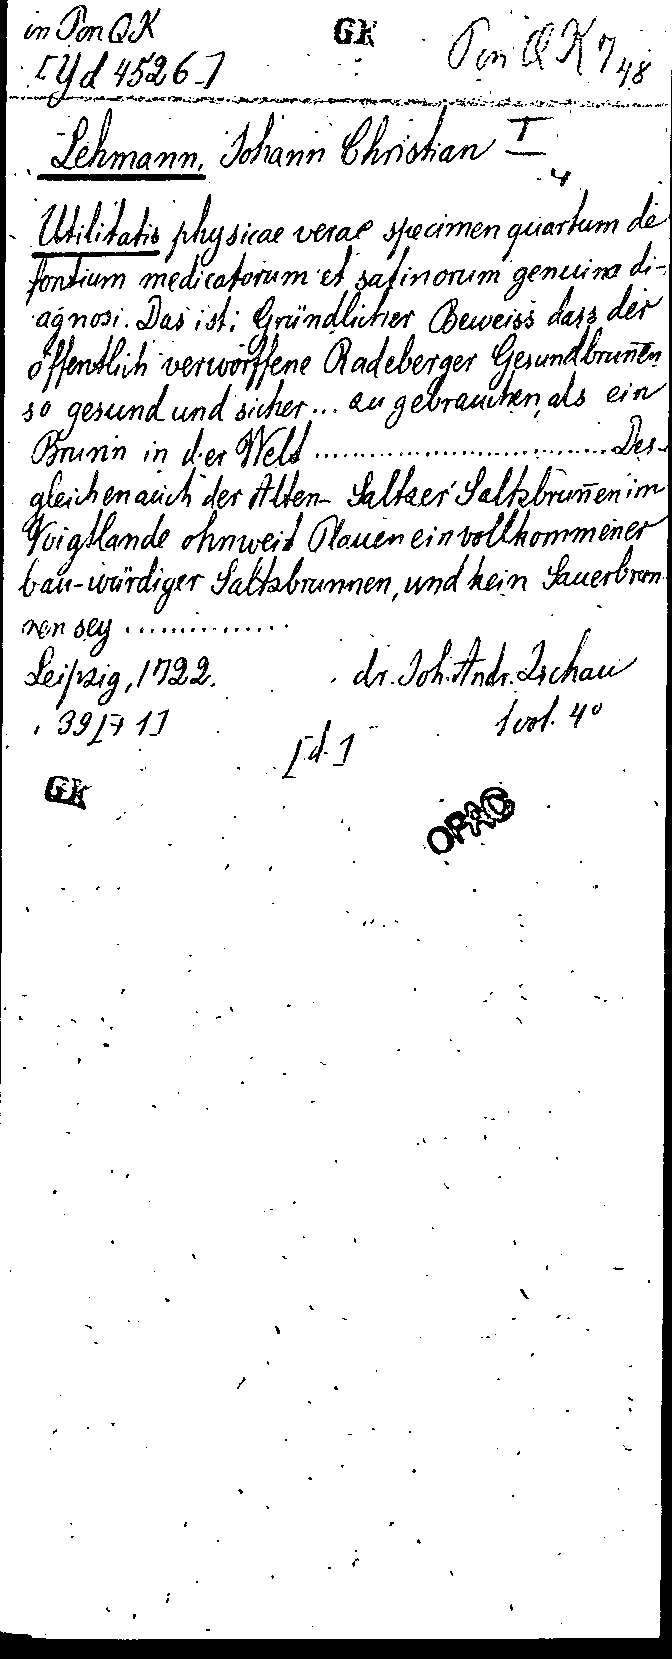 in Pon QK
[Yd 4526-]
GK
Pon QK 7 48
Lehmann, Johann Christian I
4
Utilitatis physicae verae specimen quartum de
fontium medicatorum et salinorum genuina di-
agnosi. Das ist: Gründlicher Beweiss dass der
öffentlich verworffene Radeberger Gesundbrun̄en
so gesund und sicher... zu gebrauchen, als ein
Brunn in der Welt ............................. Des-
gleichen auch der Alten-Saltzer Saltzbrun̄en im
Voigtlande ohnweit Plauen ein vollkommener
bau-würdiger Saltzbrunnen, und kein Sauerbrun-
nen sey ..............
Leipzig, 1722. dr. Joh. Andr. Zschau
39 [+ 1] 1 vol. 4°
[d.]
GK
OPAC